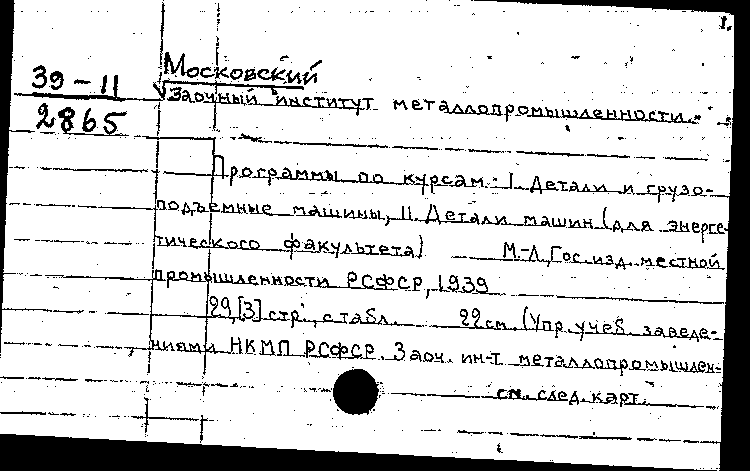 1.
Московский
39-11
2865
Заочный институт металлопромышленности.
Программы по курсам: I. Детали и грузо-
подъемные машины, II. Детали машин (для энерге-
тического факультета) М-Л, Гос. изд. местной
промышленности РСФСР, 1939
29,[3] стр., с табл. 22 см. (Упр. учеб. заведе-
ниями НКМП РСФСР. Заоч. ин-т металлопромышлен-
см. след. карт.